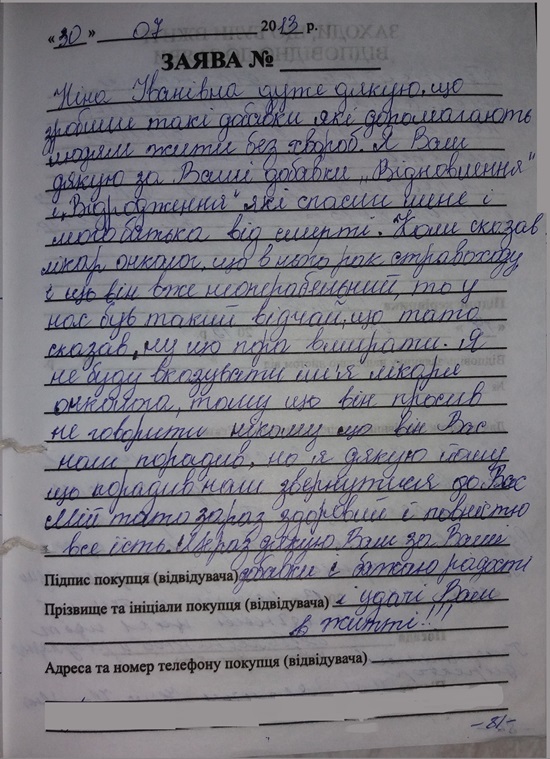 «30» 07 2013 р.
ЗАЯВА №
Ніна Іванівна дуже дякую, що
зробили такі добавки які допомагають
людям жити без хвороб. Я Вам
дякую за Ваші добавки „Відновлення"
и „Відродження" які спасли мене і
мого батька від смерті. Коли сказав
лікар онколог, що в нього рак стравоходу
і що він вже неоперабельний, то у
нас був такий відчай, що тато
сказав, ну що пора вмирати. Я
не буду вказувати им'я лікаря
онколога, тому що він просив
не говорити некому що він Вас
нам порадив, но я дякую йому
що порадив нам звернутися до Вас
Мій тато зараз здоровий і повністю
все їсть. Я раз дякую Вам за Ваші
Підпис покупця (відвідувача) добавки і бажаю радості
Прізвище та ініціали покупця (відвідувача) і удачі Вам
в житті!!!
Адреса та номер телефону покупця (відвідувача)
-81-